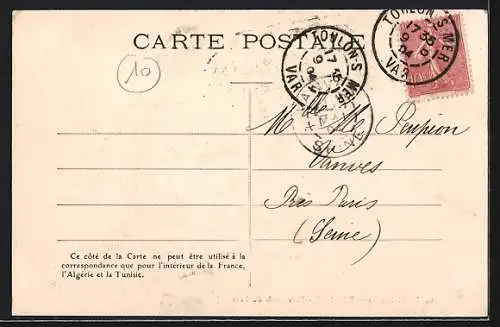 CARTE POSTALE
TOULON-S-MER
17 35
9
04
VAR
TOULON-S-MER
17 35
9 9
04
VAR
10
M
Vanves
Près Paris
(Seine)
Ce côté de la Carte ne peut être utilisé à la
correspondance que pour l'intérieur de la France,
l'Algérie et la Tunisie.